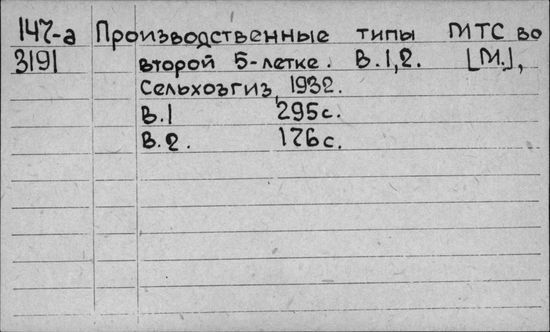 147-а Производственные типы МТС во
3191 второй 5-летке. В.1,2. [М.],
Сельхозгиз, 1932.
В.1 295с.
В.2. 176с.